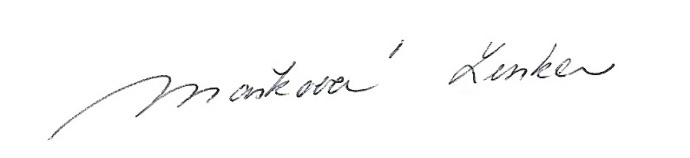 Mašková Lenka